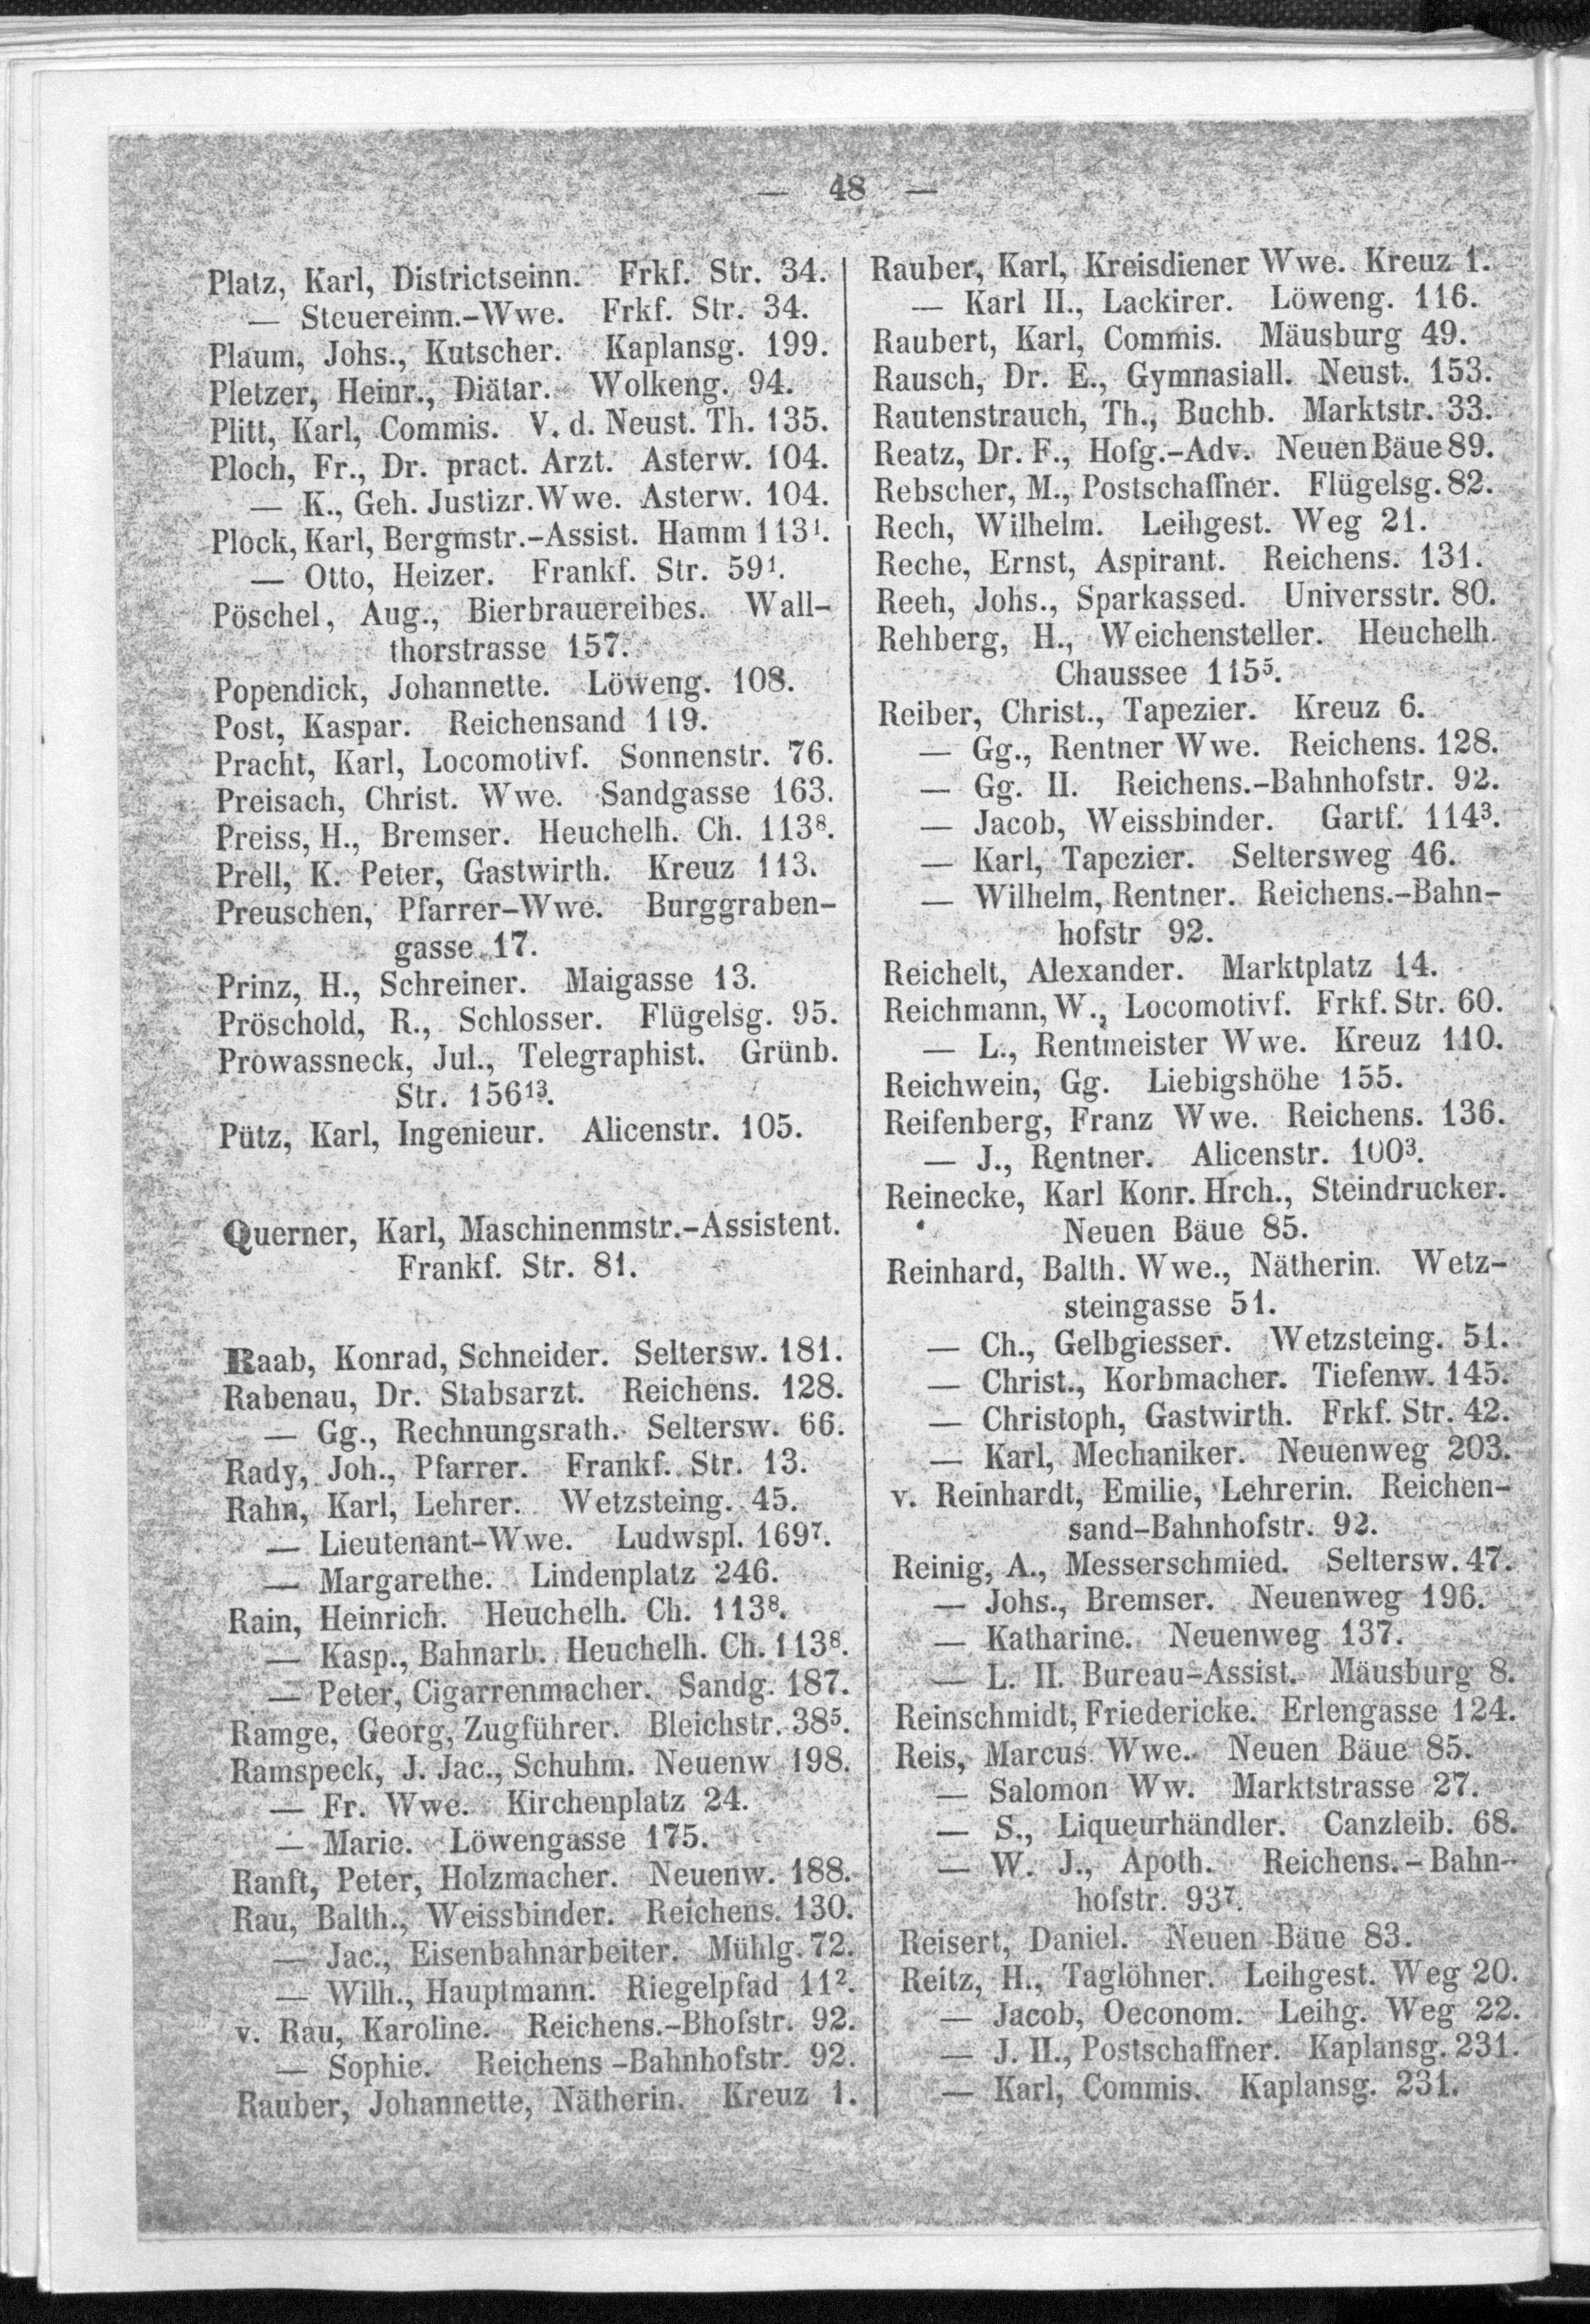 — 48 —
Platz, Karl, Districtseinn. Frkf. Str. 34.
— Steuereinn.-Wwe. Frkf. Str. 34.
Plaum, Johs., Kutscher. Kaplansg. 199.
Pletzer, Heinr., Diätar. Wolkeng. 94.
Plitt, Karl, Commis. V. d. Neust. Th. 135.
Ploch, Fr., Dr. pract. Arzt. Asterw. 104.
— K., Geh. Justizr. Wwe. Asterw. 104.
Plock, Karl, Bergmstr.-Assist. Hamm 113¹.
— Otto, Heizer. Frankf. Str. 59¹.
Pöschel, Aug., Bierbrauereibes. Wall-
thorstrasse 157.
Popendick, Johannette. Löweng. 108.
Post, Kaspar. Reichensand 119.
Pracht, Karl, Locomotivf. Sonnenstr. 76.
Preisach, Christ. Wwe. Sandgasse 163.
Preiss, H., Bremser. Heuchelh. Ch. 113⁸.
Prell, K. Peter, Gastwirth. Kreuz 113.
Preuschen, Pfarrer-Wwe. Burggraben-
gasse 17.
Prinz, H., Schreiner. Maigasse 13.
Pröschold, R., Schlosser. Flügelsg. 95.
Prowassneck, Jul., Telegraphist. Grünb.
Str. 156¹³.
Pütz, Karl, Ingenieur. Alicenstr. 105.
Querner, Karl, Maschinenmstr.-Assistent.
Frankf. Str. 81.
Raab, Konrad, Schneider. Seltersw. 181.
Rabenau, Dr. Stabsarzt. Reichens. 128.
— Gg., Rechnungsrath. Seltersw. 66.
Rady, Joh., Pfarrer. Frankf. Str. 13.
Rahn, Karl, Lehrer. Wetzsteing. 45.
— Lieutenant-Wwe. Ludwspl. 169⁷.
— Margarethe. Lindenplatz 246.
Rain, Heinrich. Heuchelh. Ch. 113⁸.
— Kasp., Bahnarb. Heuchelh. Ch. 113⁸.
— Peter, Cigarrenmacher. Sandg. 187.
Ramge, Georg, Zugführer. Bleichstr. 38⁵.
Ramspeck, J. Jac., Schuhm. Neuenw 198.
— Fr. Wwe. Kirchenplatz 24.
— Marie. Löwengasse 175.
Ranft, Peter, Holzmacher. Neuenw. 188.
Rau, Balth., Weissbinder. Reichens. 130.
— Jac., Eisenbahnarbeiter. Mühlg. 72.
— Wilh., Hauptmann. Riegelpfad 11².
v. Rau, Karoline. Reichens.-Bhofstr. 92.
— Sophie. Reichens-Bahnhofstr. 92.
Rauber, Johannette, Nätherin. Kreuz 1.
Rauber, Karl, Kreisdiener Wwe. Kreuz 1.
— Karl II., Lackirer. Löweng. 116.
Raubert, Karl, Commis. Mäusburg 49.
Rausch, Dr. E., Gymnasiall. Neust. 153.
Rautenstrauch, Th., Buchb. Marktstr. 33.
Reatz, Dr. F., Hofg.-Adv. Neuen Bäue 89.
Rebscher, M., Postschaffner. Flügelsg. 82.
Rech, Wilhelm. Leihgest. Weg 21.
Reche, Ernst, Aspirant. Reichens. 131.
Reeh, Johs., Sparkassed. Universstr. 80.
Rehberg, H., Weichensteller. Heuchelh.
Chaussee 115⁵.
Reiber, Christ., Tapezier. Kreuz 6.
— Gg., Rentner Wwe. Reichens. 128.
— Gg. II. Reichens.-Bahnhofstr. 92.
— Jacob, Weissbinder. Gartf. 114³.
— Karl, Tapezier. Seltersweg 46.
— Wilhelm, Rentner. Reichens.-Bahn-
hofstr 92.
Reichelt, Alexander. Marktplatz 14.
Reichmann, W., Locomotivf. Frkf. Str. 60.
— L., Rentmeister Wwe. Kreuz 110.
Reichwein, Gg. Liebigshöhe 155.
Reifenberg, Franz Wwe. Reichens. 136.
— J., Rentner. Alicenstr. 100³.
Reinecke, Karl Konr. Hrch., Steindrucker.
Neuen Bäue 85.
Reinhard, Balth. Wwe., Nätherin. Wetz-
steingasse 51.
— Ch., Gelbgiesser. Wetzsteing. 51.
— Christ., Korbmacher. Tiefenw. 145.
— Christoph, Gastwirth. Frkf. Str. 42.
— Karl, Mechaniker. Neuenweg 203.
v. Reinhardt, Emilie, Lehrerin. Reichen-
sand-Bahnhofstr. 92.
Reinig, A., Messerschmied. Seltersw. 47.
— Johs., Bremser. Neuenweg 196.
— Katharine. Neuenweg 137.
— L. II. Bureau-Assist. Mäusburg 8.
Reinschmidt, Friedericke. Erlengasse 124.
Reis, Marcus Wwe. Neuen Bäue 85.
— Salomon Ww. Marktstrasse 27.
— S., Liqueurhändler. Canzleib. 68.
— W. J., Apoth. Reichens.-Bahn-
hofstr. 93⁷.
Reisert, Daniel. Neuen Bäue 83.
Reitz, H., Taglöhner. Leihgest. Weg 20.
— Jacob, Oeconom. Leihg. Weg 22.
— J. II., Postschaffner. Kaplansg. 231.
— Karl, Commis. Kaplansg. 231.